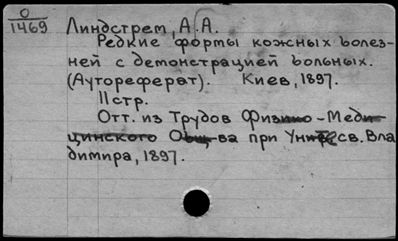 О
1469
Линдстрем, А.А.
Редкие формы кожных болез-
ней с демонстрацией больных.
(Аутореферат). Киев, 1897.
11 стр.
Отт. из Трудов Физико-Меди-
цинского Общ-ва при Унив. св. Вла
димира, 1897.